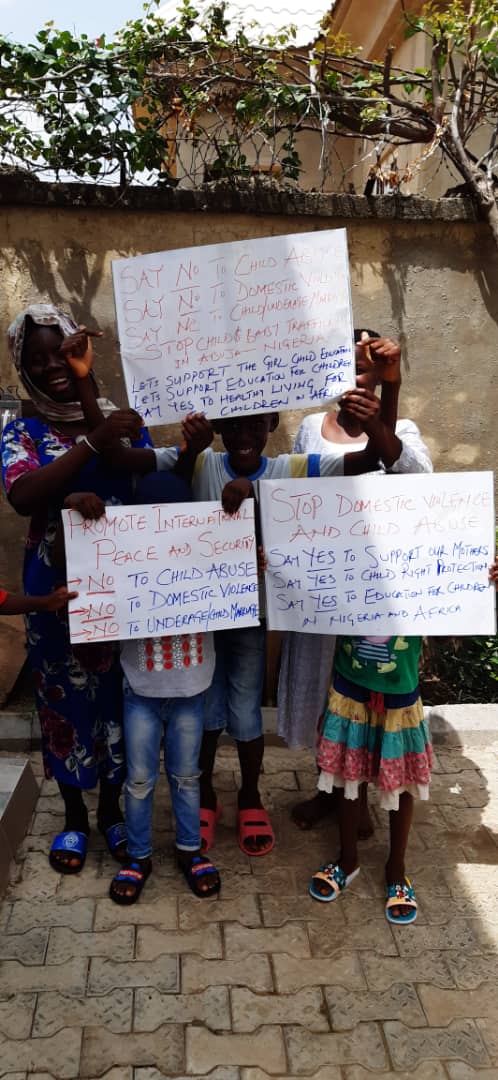 SAY NO TO CHILD ABUSE
SAY NO TO DOMESTIC VIOLENCE
SAY NO TO CHILD/UNDERAGE/MARRIAGE
STOP CHILD & BABY TRAFFIC
IN ABUJA NIGERIA
LETS SUPPORT THE GIRL CHILD EDUCATION
LETS SUPPORT EDUCATION FOR CHILDREN
SAY YES TO HEALTHY LIVING FOR
CHILDREN IN AFRICA
PROMOTE INTERNATIONAL
PEACE AND SECURITY
→ NO TO CHILD ABUSE
→ NO TO DOMESTIC VIOLENCE
→ NO TO UNDERAGE/CHILD MARRIAGE
STOP DOMESTIC VIOLENCE
AND CHILD ABUSE
SAY YES TO SUPPORT OUR MOTHERS
SAY YES TO CHILD RIGHT PROTECTION
SAY YES TO EDUCATION FOR CHILDREN
IN NIGERIA AND AFRICA